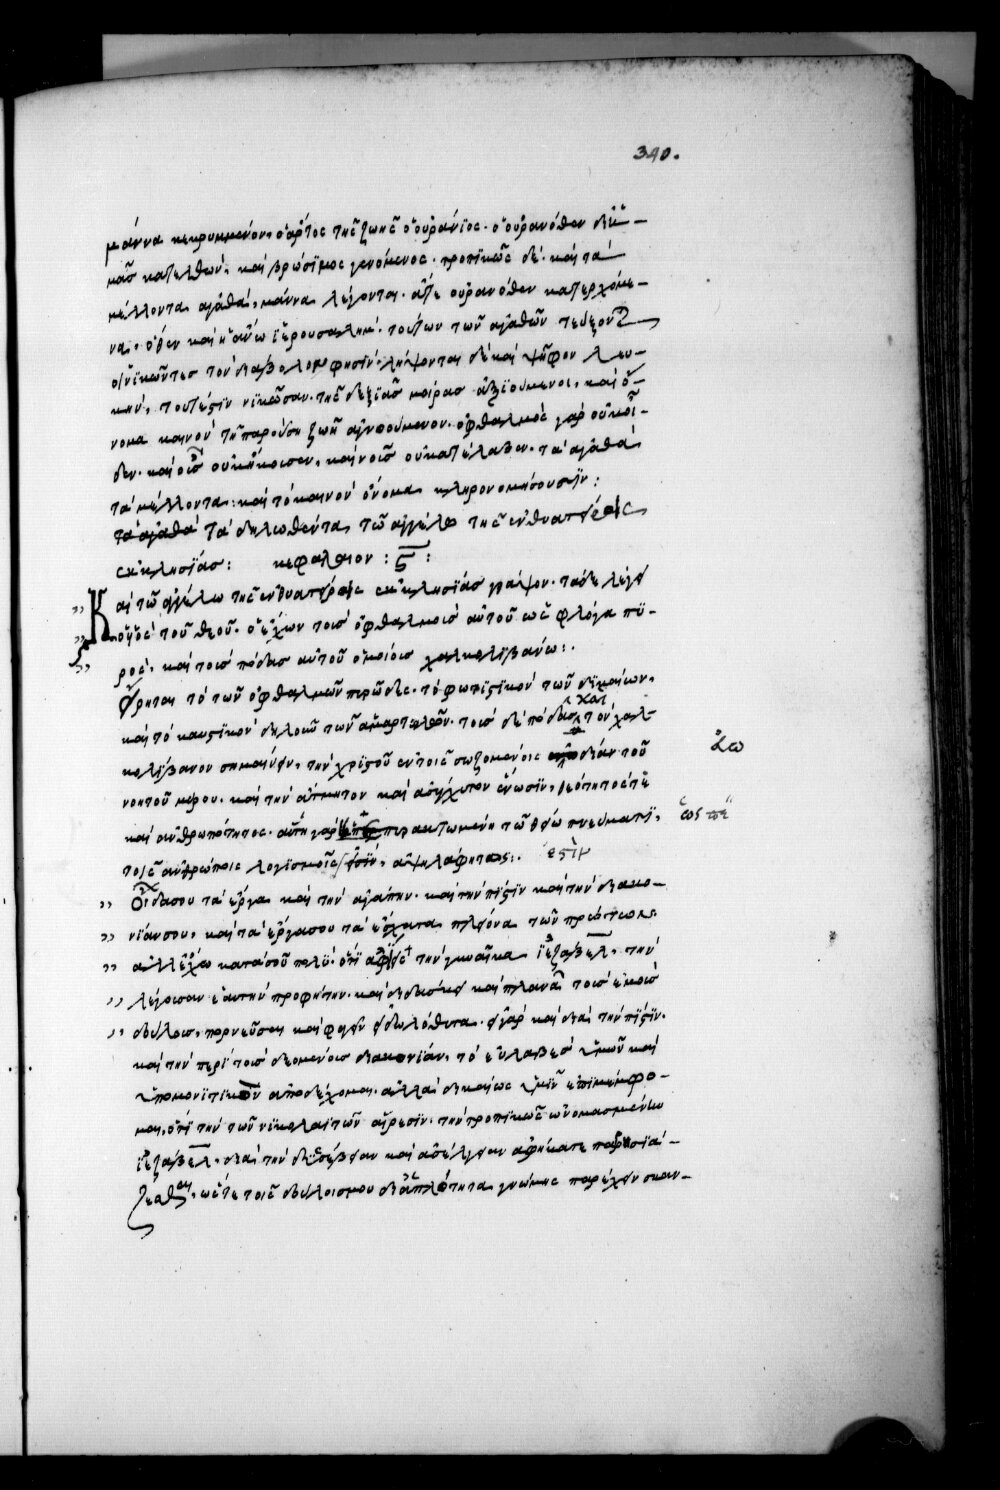 340.
μάννα κεκρυμμένον, ὁ ἄρτος τῆς ζωῆς ὁ οὐράνϊος. ὁ οὐρανόθεν δι' ἡ–
μᾶς κατελθών, καὶ βρώσϊμος γενόμενος. τροπϊκῶς δὲ. καὶ τὰ
μέλλοντα ἀγαθὰ, μάννα λέγονται. ἅτε οὐρανόθεν κατερχόμε–
να, ὅθεν καὶ ἡ ἄνω ἱερουσαλὴμ. τούτων τῶν ἀγαθῶν τεύξονται
οἱ νϊκῶντες τὸν διάβολον φησϊν. λήψονται δὲ καὶ ψῆφον λευ–
κὴν, τουτέστϊν νϊκῶσαν. τῆς δεξϊᾶς μοίρας ἀξϊούμενοι, καὶ ὄ–
νομα καινὸν τῇ παρούσῃ ζωῇ ἀγνοούμενον. ὀφθαλμὸς γὰρ οὐκ οἶ–
δεν. καὶ οὖς οὐκ ἤκουσεν, καὶ νοῦς οὐ κατέλαβεν. τὰ ἀγαθὰ
τὰ μέλλοντα: καὶ τὸ καινὸν ὄνομα κληρονομήσουσϊν:
τὰ ἀγαθὰ τὰ δηλωθέντα τῶ ἀγγέλω τῆς ἐν θυατείροις
ἐκκλησϊάς: κεφάλαιον: ϛ:
Καὶ τῶ ἀγγέλω τῆς ἐν θυατείροις ἐκκλησϊάς γράψον. τάδε λέγει
ὁ υἱὸς τοῦ θεοῦ. ὁ ἔχων τοὺς ὀφθαλμοὺς αὐτοῦ ὡς φλόγα πϋ–
ρὸς, καὶ τοὺς πόδας αὐτοῦ ὁμοίους χαλκολϊβάνω:.
Εἴρηται τὸ τῶν ὀφθαλμῶν πυρῶδες. τὸ φωτϊστϊκὸν τῶν δϊκαίων,
καὶ τὸ καυστϊκὸν δηλοῦν τῶν ἁμαρτωλῶν. τοὺς δὲ πόδας καὶ τὸν χαλ–
κολϊβανον σημαίνειν, τὴν χρϊστοῦ ἐν τοῖς σωζομένοις εὐωδίαν τοῦ
νοητοῦ μύρου. καὶ τὴν ἄτμητον καὶ ἀσύγχυτον ἕνωσϊν, θεότητός τε
καὶ ἀνθρωπότητος. αὕτη γὰρ πυρακτωμένη τῶ θείω πνεύματϊ,
τοῖς ἀνθρώποις λογϊσμοῖς ἐστὶν, ἀψηλάφητος:. ἐστὶν
Οἶδά σου τὰ ἔργα καὶ τὴν ἀγάπην. καὶ τὴν πίστϊν καὶ τὴν διακο–
νϊάν σου, καὶ τὰ ἔργα σου τὰ ἔσχατα πλείονα τῶν πρώτων.
ἀλλ' ἔχω κατὰ σοῦ πολὺ. ὅτϊ ἀφεῖς τὴν γυναῖκα ϊεζάβελ, τὴν
λέγουσαν ἑαυτὴν προφήτην. καὶ διδάσκει καὶ πλανᾶ τοὺς ἐμοὺς
δούλους, πορνεῦσαι καὶ φαγεῖν εἰδωλόθυτα. εἰ γὰρ καὶ διὰ τὴν πίστϊν.
καὶ τὴν περὶ τοὺς δεομένους διακονϊάν, τὸ εὐλαβὲς ὑμῶν καὶ
ὑπομονϊτϊκὸν ἀποδέχομαι. ἀλλὰ δικαίως ὑμῖν ἐπϊμέμφο–
μαι, ὅτϊ τὴν τῶν νϊκολαϊτῶν αἵρεσϊν. τὴν τροπϊκῶς ὠνομασμένην
ϊεζάβελ, διὰ τὴν δυσσέβειαν καὶ ἀσέλγειαν ἀφήκατε παρρησϊά–
ζεσθαι, ὥστε τοῖς δούλοις μου δι' ἁπλότητα γνώμης παρέχειν σκαν–